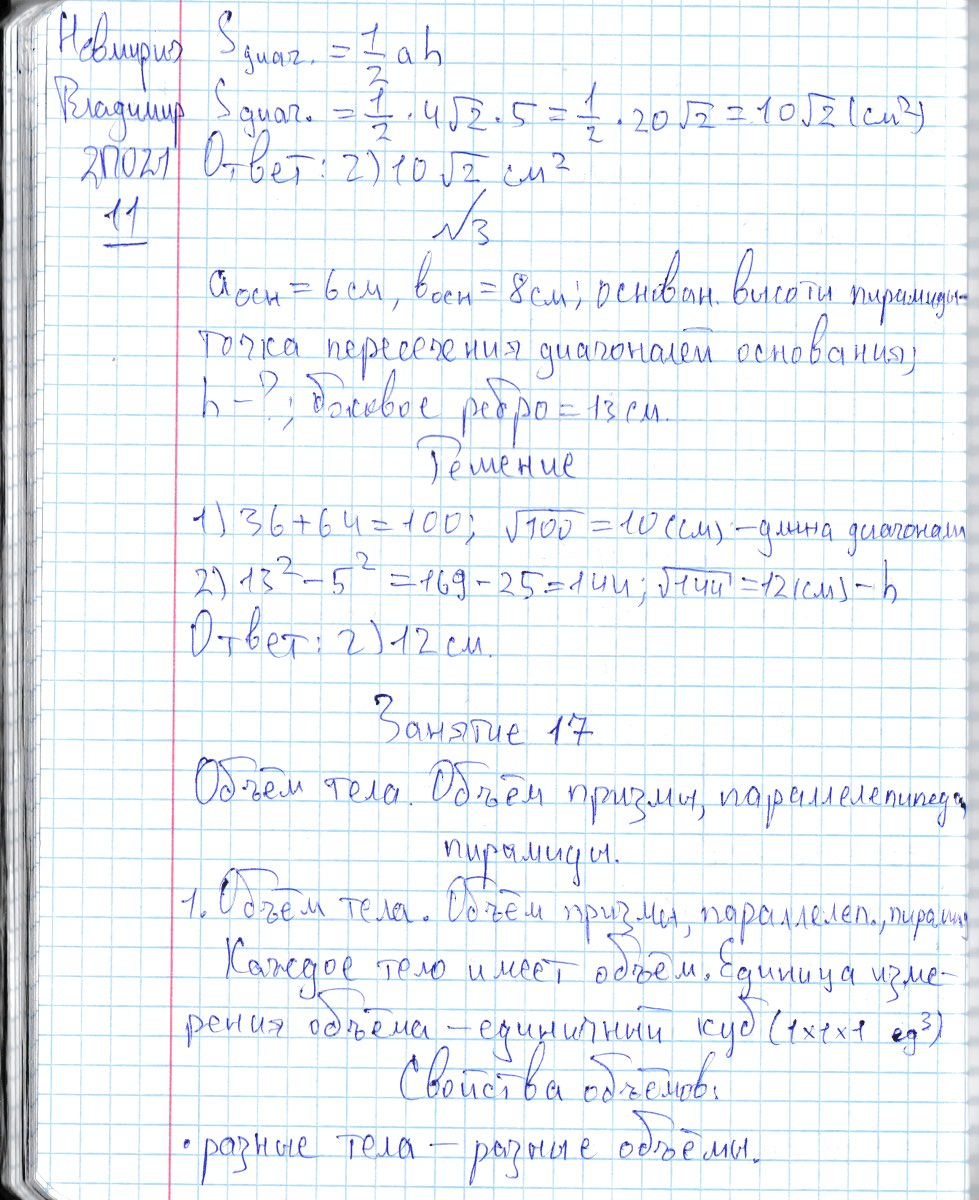 Невмирич Sдиаг. = 1/2 ah
Владимир Sдиаг. = 1/2 · 4√2 · 5 = 1/2 · 20√2 = 10√2 (см²)
2П021 Ответ: г) 10√2 см²
11 №3
aосн = 6 см, bосн = 8 см; основан. высоты пирамиды-
точка пересечения диагоналей основания;
h - ?; боковое ребро = 13 см.
Решение
1) 36 + 64 = 100; √100 = 10 (см) - длина диагонали
2) 13² - 5² = 169 - 25 = 144; √144 = 12 (см) - h
Ответ: г) 12 см.
Занятие 17
Объём тела. Объём призмы, параллелепипеда,
пирамиды.
1. Объём тела. Объём призмы, параллелеп., пирамид
Каждое тело имеет объём. Единица изме-
рения объёма - единичный куб (1×1×1 ед³)
Свойства объёмов:
· разные тела - разные объёмы.